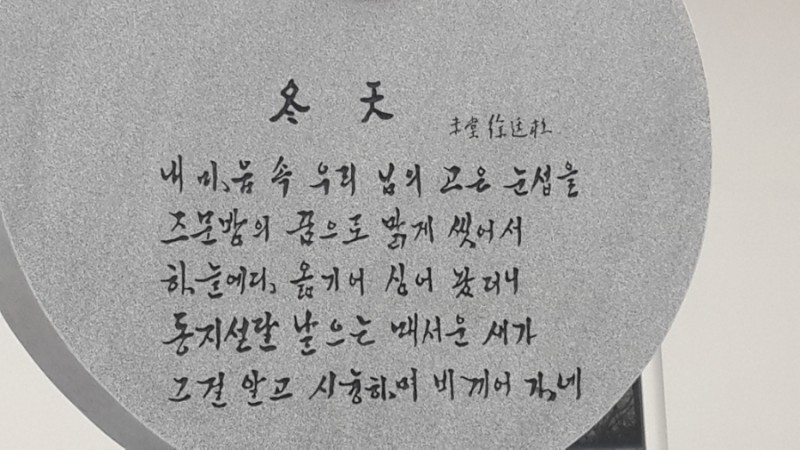 冬天
未堂 徐廷柱
내 마음 속 우리 님의 고은 눈섭을
즈문밤의 꿈으로 맑게 씻어서
하늘에다 옮기어 심어 놨더니
동지섣달 날으는 매서운 새가
그걸 알고 시늉하며 비끼어 가네